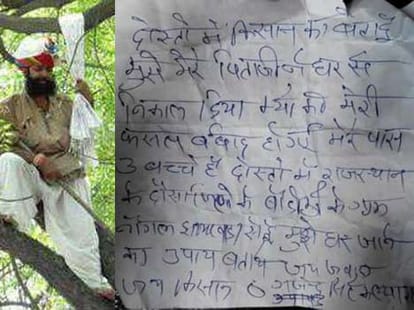 दोस्तो मैं किसान का बेटा हूँ
मुझे मेरे पिताजी ने घर से
निकाल दिया क्यो की मेरी
फसल बर्बाद हो गई मेरे पास
3 बच्चे हैं दोस्तो मैं राजस्थान
के दौसा जिले के
नांगल झामरवाड़ा से हूँ मुझे घर जाने
का उपाय बताय जय जवान
जय किसान गजेन्द्र सिंह कल्याण